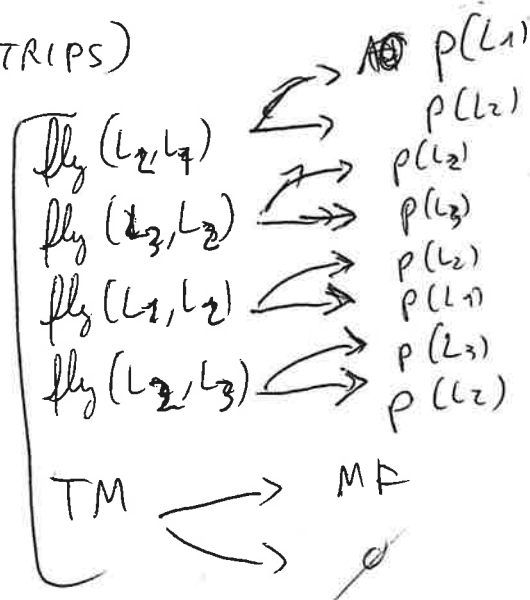 TRIPS)
p(L1)
fly (L2, L1) p(L2)
p(L2)
fly (L3, L2) p(L3)
p(L2)
fly (L1, L2) p(L1)
p(L3)
fly (L2, L3) p(L2)
TM MF
Ø